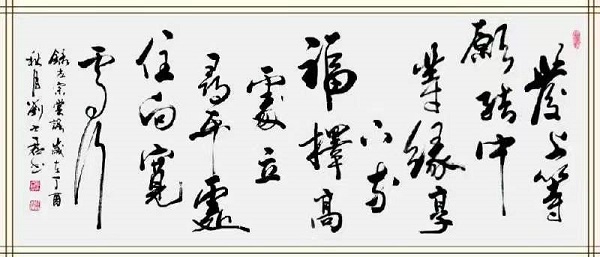 發上等
願結中
等緣享
下等
福擇高
處立
尋平處
住向寬
處行
錄左宗棠語歲在丁酉
秋月劉書